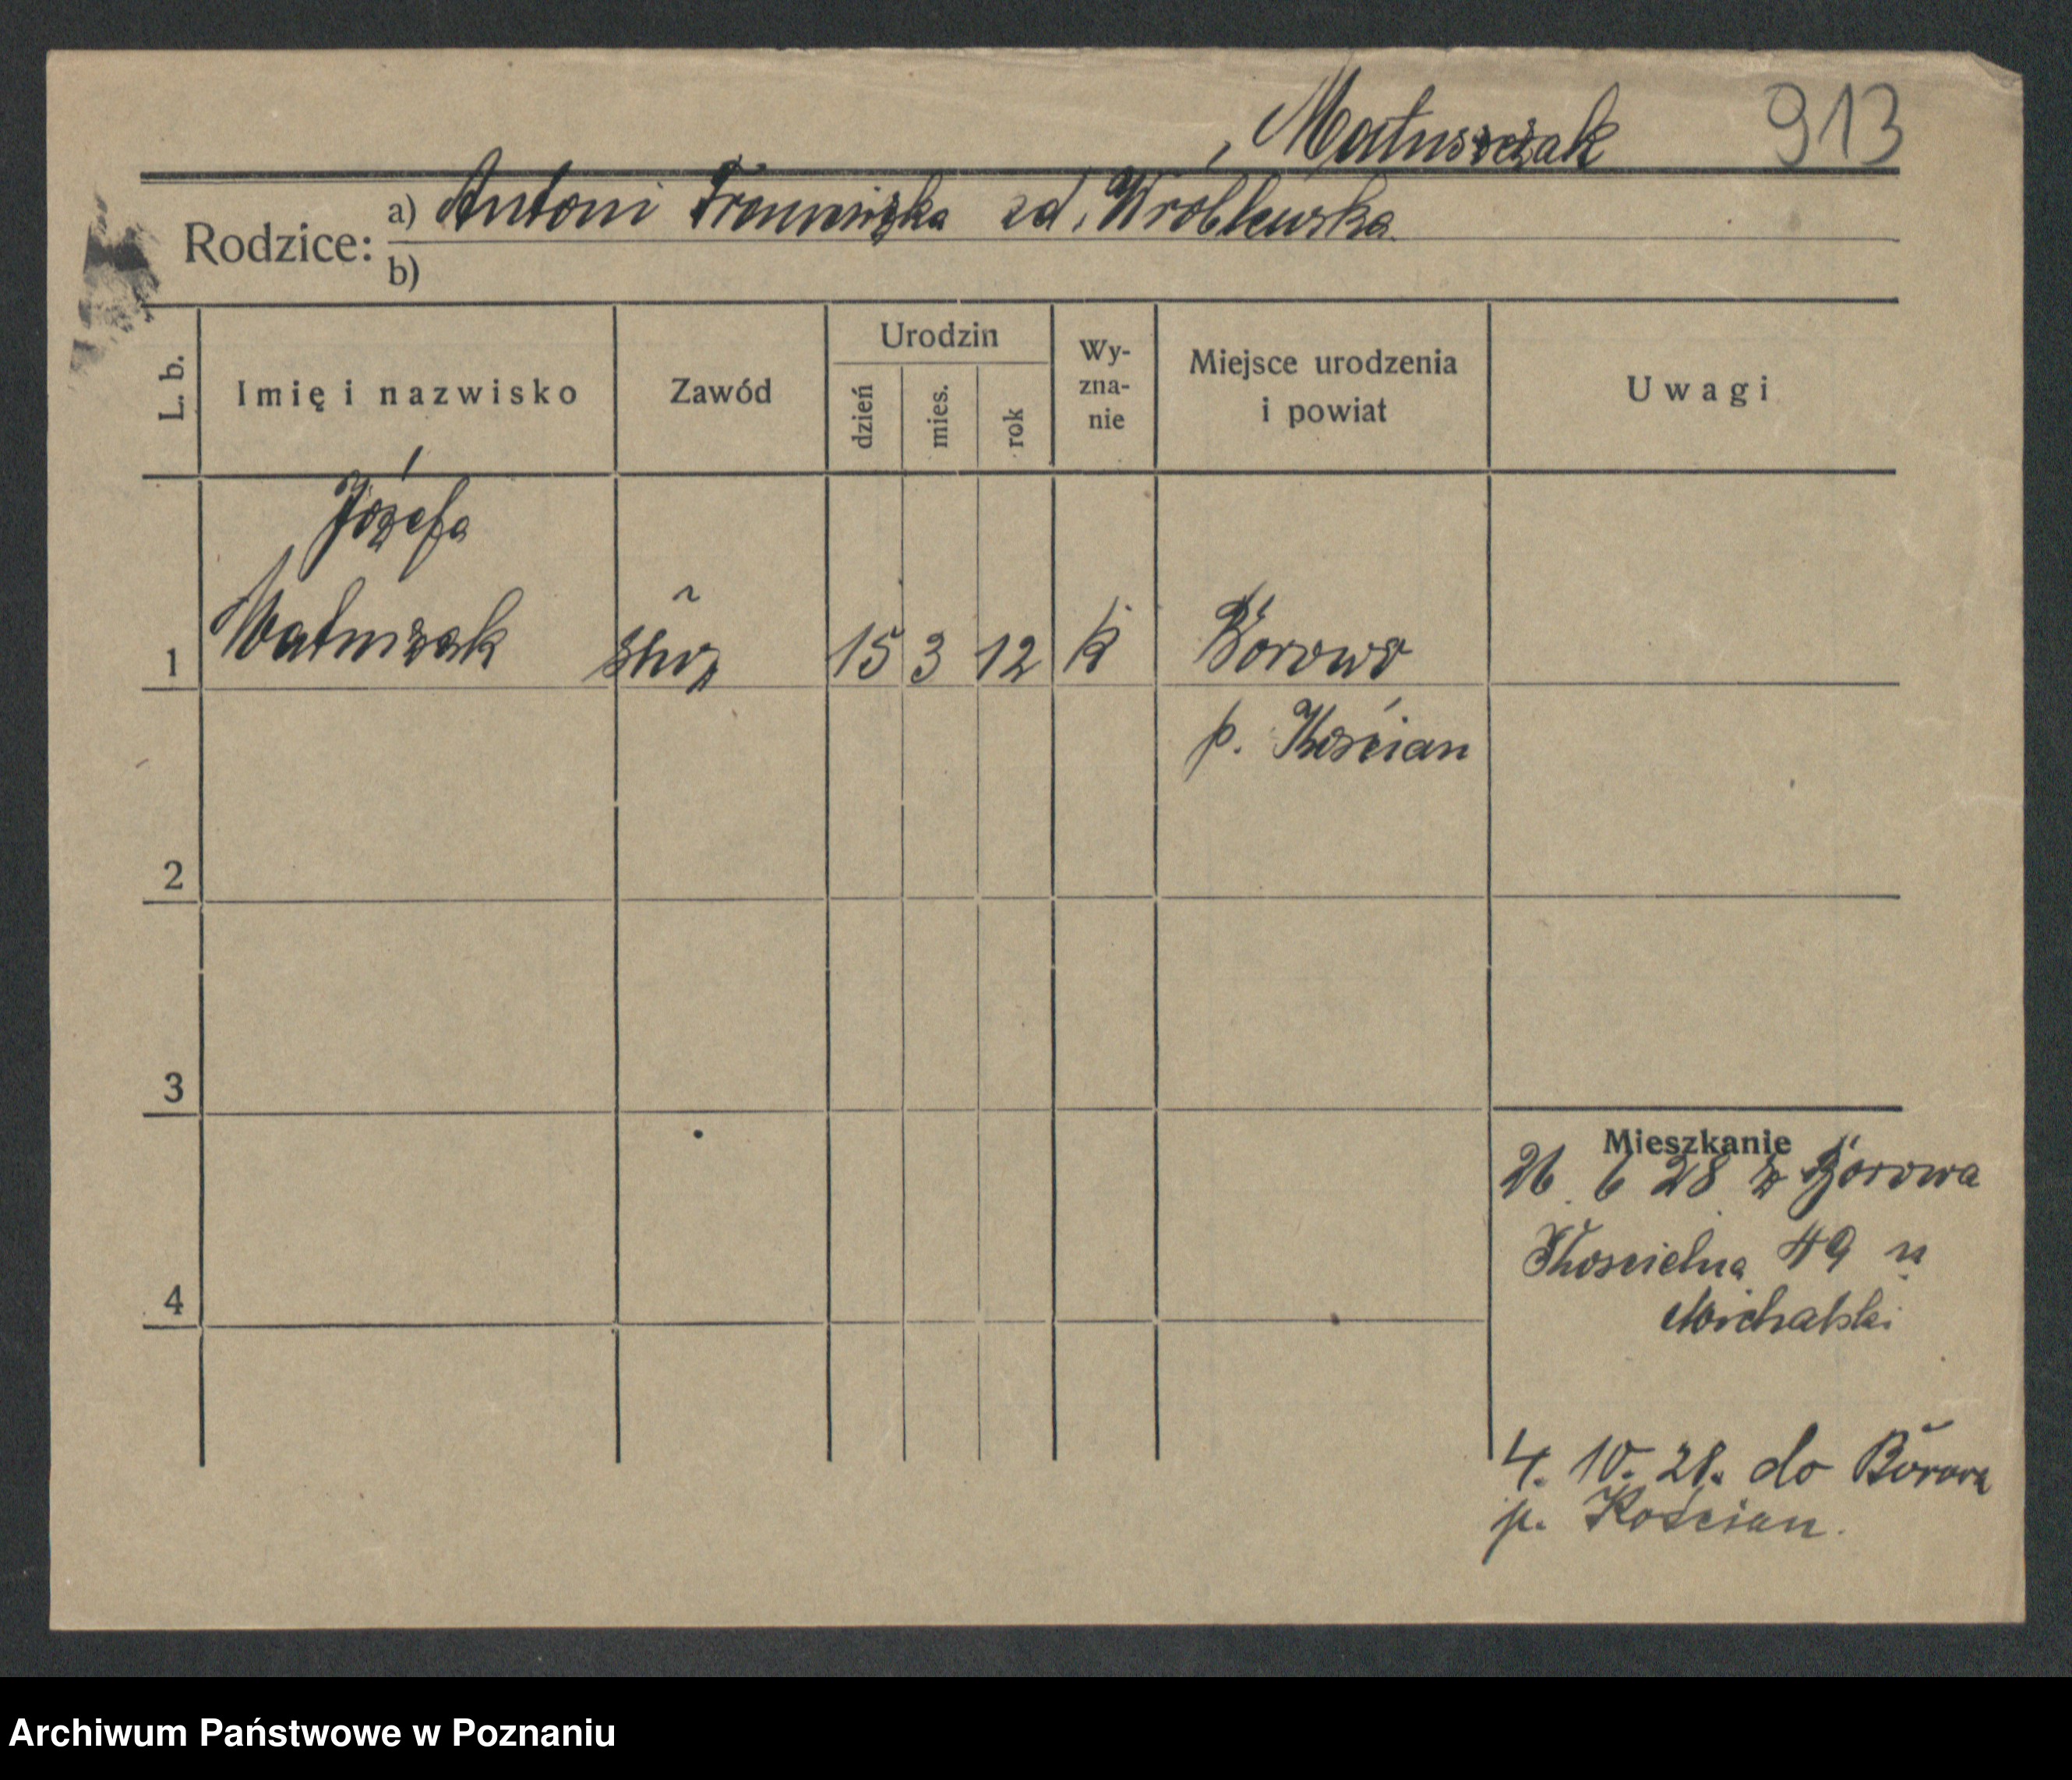 , Matuszczak 913
Rodzice: a) Antoni Franciszka zd. Wroblewska
b)
L. b. Imię i nazwisko Zawód Urodzin dzień mies. rok Wy-zna-nie Miejsce urodzenia i powiat Uwagi
Józefa
1 Matuszak służ 15 3 12 k Borowo
p. Kościan
2
3
Mieszkanie
26 6 28 z Borowa
Kościelna 49 u
4 Michalski
4. 10. 28. do Borowa
p. Kościan.
Archiwum Państwowe w Poznaniu